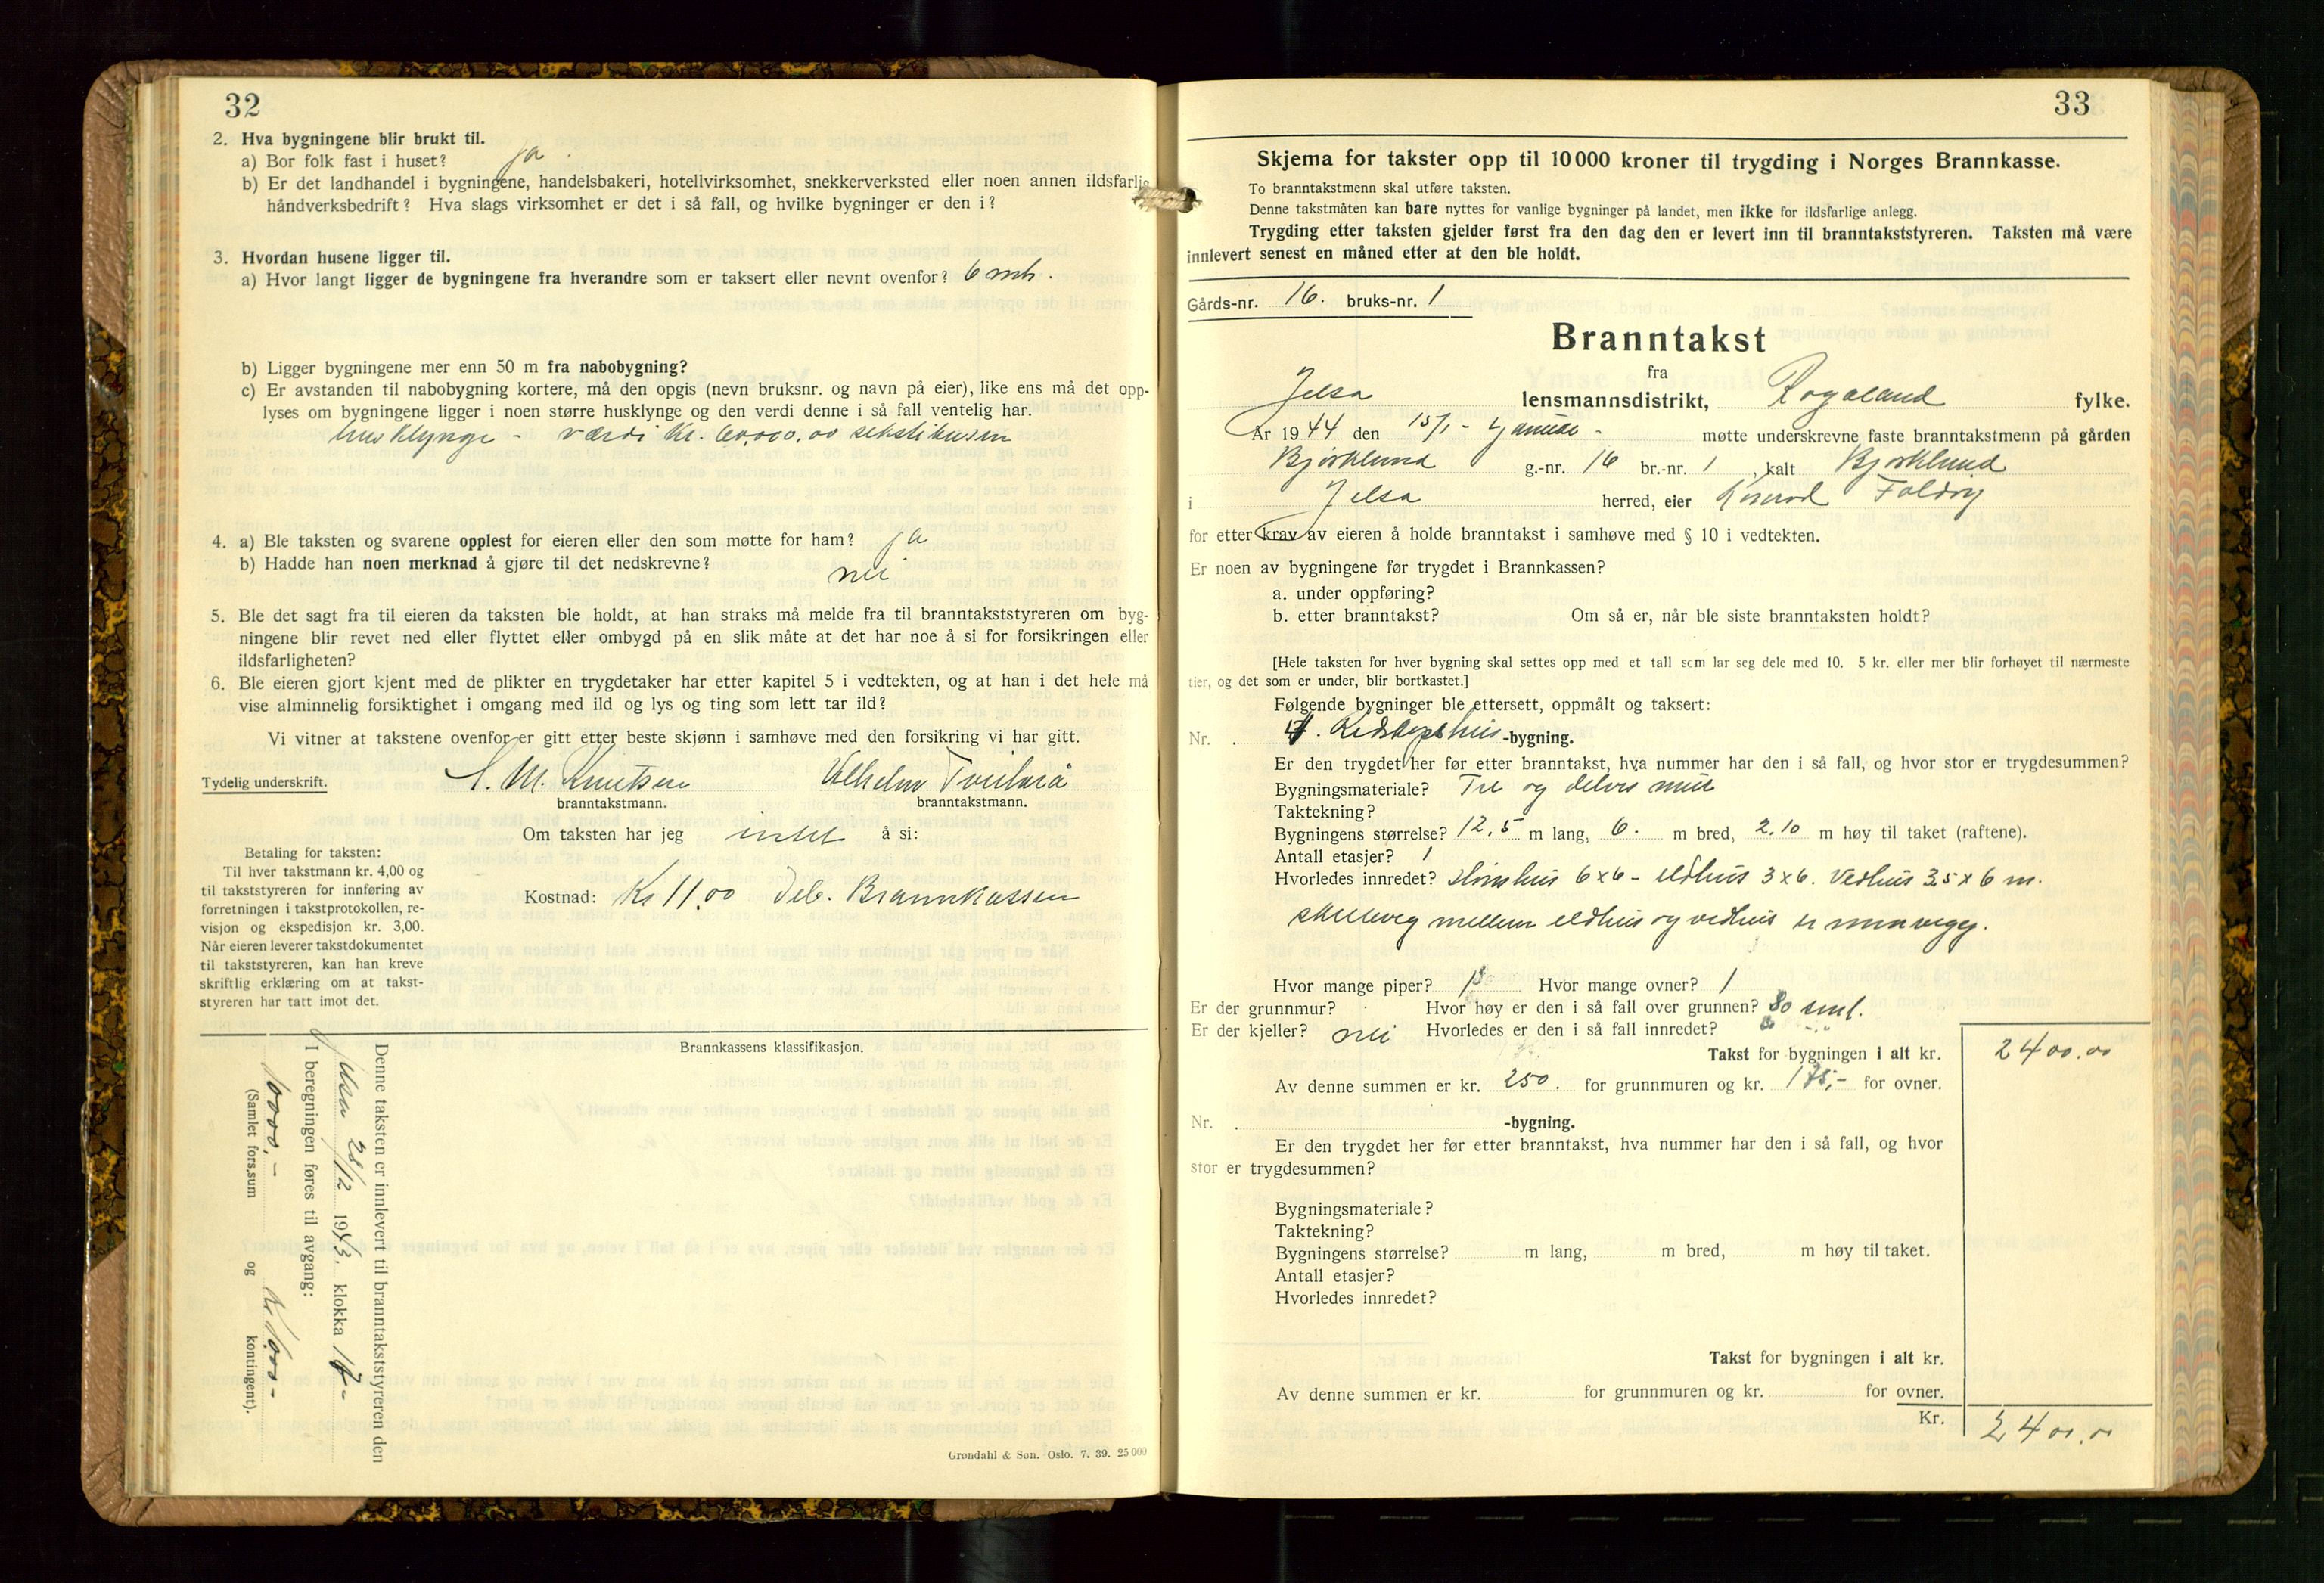 32
2. Hva bygningene blir brukt til.
a) Bor folk fast i huset? ja.
b) Er det landhandel i bygningene, handelsbakeri, hotellvirksomhet, snekkerverksted eller noen annen ildsfarlig
håndverksbedrift? Hva slags virksomhet er det i så fall, og hvilke bygninger er den i?
3. Hvordan husene ligger til.
a) Hvor langt ligger de bygningene fra hverandre som er taksert eller nevnt ovenfor? 6 mtr.
b) Ligger bygningene mer enn 50 m fra nabobygning?
c) Er avstanden til nabobygning kortere, må den opgis (nevn bruksnr. og navn på eier), like ens må det opp-
lyses om bygningene ligger i noen større husklynge og den verdi denne i så fall ventelig har.
hus klynge - værdi Kr. 60,000,00 sekstitusen
4. a) Ble taksten og svarene opplest for eieren eller den som møtte for ham? ja
b) Hadde han noen merknad å gjøre til det nedskrevne? nei
5. Ble det sagt fra til eieren da taksten ble holdt, at han straks må melde fra til branntakststyreren om byg-
ningene blir revet ned eller flyttet eller ombygd på en slik måte at det har noe å si for forsikringen eller
ildsfarligheten?
6. Ble eieren gjort kjent med de plikter en trygdetaker har etter kapitel 5 i vedtekten, og at han i det hele må
vise alminnelig forsiktighet i omgang med ild og lys og ting som lett tar ild?
Vi vitner at takstene ovenfor er gitt etter beste skjønn i samhøve med den forsikring vi har gitt.
Tydelig underskrift. S. M. Knutsen Vilhelm
branntakstmann. branntakstmann.
Om taksten har jeg intet å si:
Kostnad: Kr 11,00 deb. Brannkassen
Betaling for taksten:
Til hver takstmann kr. 4,00 og
til takststyreren for innføring av
forretningen i takstprotokollen, re-
visjon og ekspedisjon kr. 3,00.
Når eieren leverer takstdokumentet
til takststyreren, kan han kreve
skriftlig erklæring om at takst-
styreren har tatt imot det.
Brannkassens klassifikasjon.
Denne taksten er innlevert til branntakststyreren den
Jelsa 28/12 1943. klokka 17-
I beregningen føres til avgang:
(Samlet fors.sum og kontingent).
Grøndahl & Søn. Oslo. 7. 39. 25 000
33
Skjema for takster opp til 10 000 kroner til trygding i Norges Brannkasse.
To branntakstmenn skal utføre taksten.
Denne takstmåten kan bare nyttes for vanlige bygninger på landet, men ikke for ildsfarlige anlegg.
Trygding etter taksten gjelder først fra den dag den er levert inn til branntakststyreren. Taksten må være
innlevert senest en måned etter at den ble holdt.
Gårds-nr. 16. bruks-nr. 1
Branntakst
fra
Jelsa lensmannsdistrikt, Rogaland fylke.
År 1944 den 15/1 - januar - møtte underskrevne faste branntakstmenn på gården
Bjørklund g.-nr. 16 br.-nr. 1, kalt Bjørklund
i Jelsa herred, eier Konrad Foldøy
for etter krav av eieren å holde branntakst i samhøve med § 10 i vedtekten.
Er noen av bygningene før trygdet i Brannkassen?
a. under oppføring?
b. etter branntakst? Om så er, når ble siste branntaksten holdt?
[Hele taksten for hver bygning skal settes opp med et tall som lar seg dele med 10. 5 kr. eller mer blir forhøyet til nærmeste
tier, og det som er under, blir bortkastet.]
Følgende bygninger ble ettersett, oppmålt og taksert:
Nr. Redskapshus-bygning.
Er den trygdet her før etter branntakst, hva nummer har den i så fall, og hvor stor er trygdesummen?
Bygningsmateriale? Tre og delvis mur
Taktekning?
Bygningens størrelse? 12,5 m lang, 6. m bred, 2.10 m høy til taket (raftene).
Antall etasjer? 1
Hvorledes innredet? 6x6 - eldhus 3x6. Vedhus 3,5 x 6 m.
skilleveg mellem eldhus og vedhus er murvegg.
Hvor mange piper? 1 Hvor mange ovner? 1
Er der grunnmur? Hvor høy er den i så fall over grunnen? 80 sml.
Er der kjeller? nei Hvorledes er den i så fall innredet?
Takst for bygningen i alt kr. 2400.00
Av denne summen er kr. 250. for grunnmuren og kr. 175,- for ovner.
Nr. -bygning.
Er den trygdet her før etter branntakst, hva nummer har den i så fall, og hvor
stor er trygdesummen?
Bygningsmateriale?
Taktekning?
Bygningens størrelse? m lang, m bred, m høy til taket.
Antall etasjer?
Hvorledes innredet?
Takst for bygningen i alt kr.
Av denne summen er kr. for grunnmuren og kr. for ovner.
Kr. 2400.00